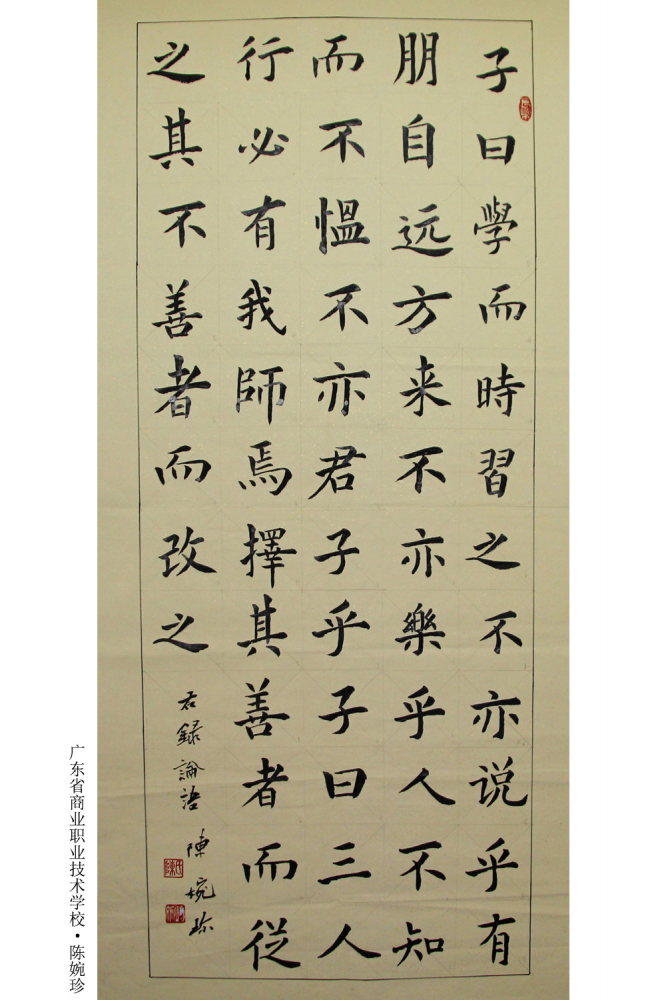 子曰學而時習之不亦说乎有
朋自远方来不亦樂乎人不知
而不愠不亦君子乎子曰三人
行必有我師焉擇其善者而從
之其不善者而改之
右録論语
陳婉珍
广东省商业职业技术学校·陈婉珍